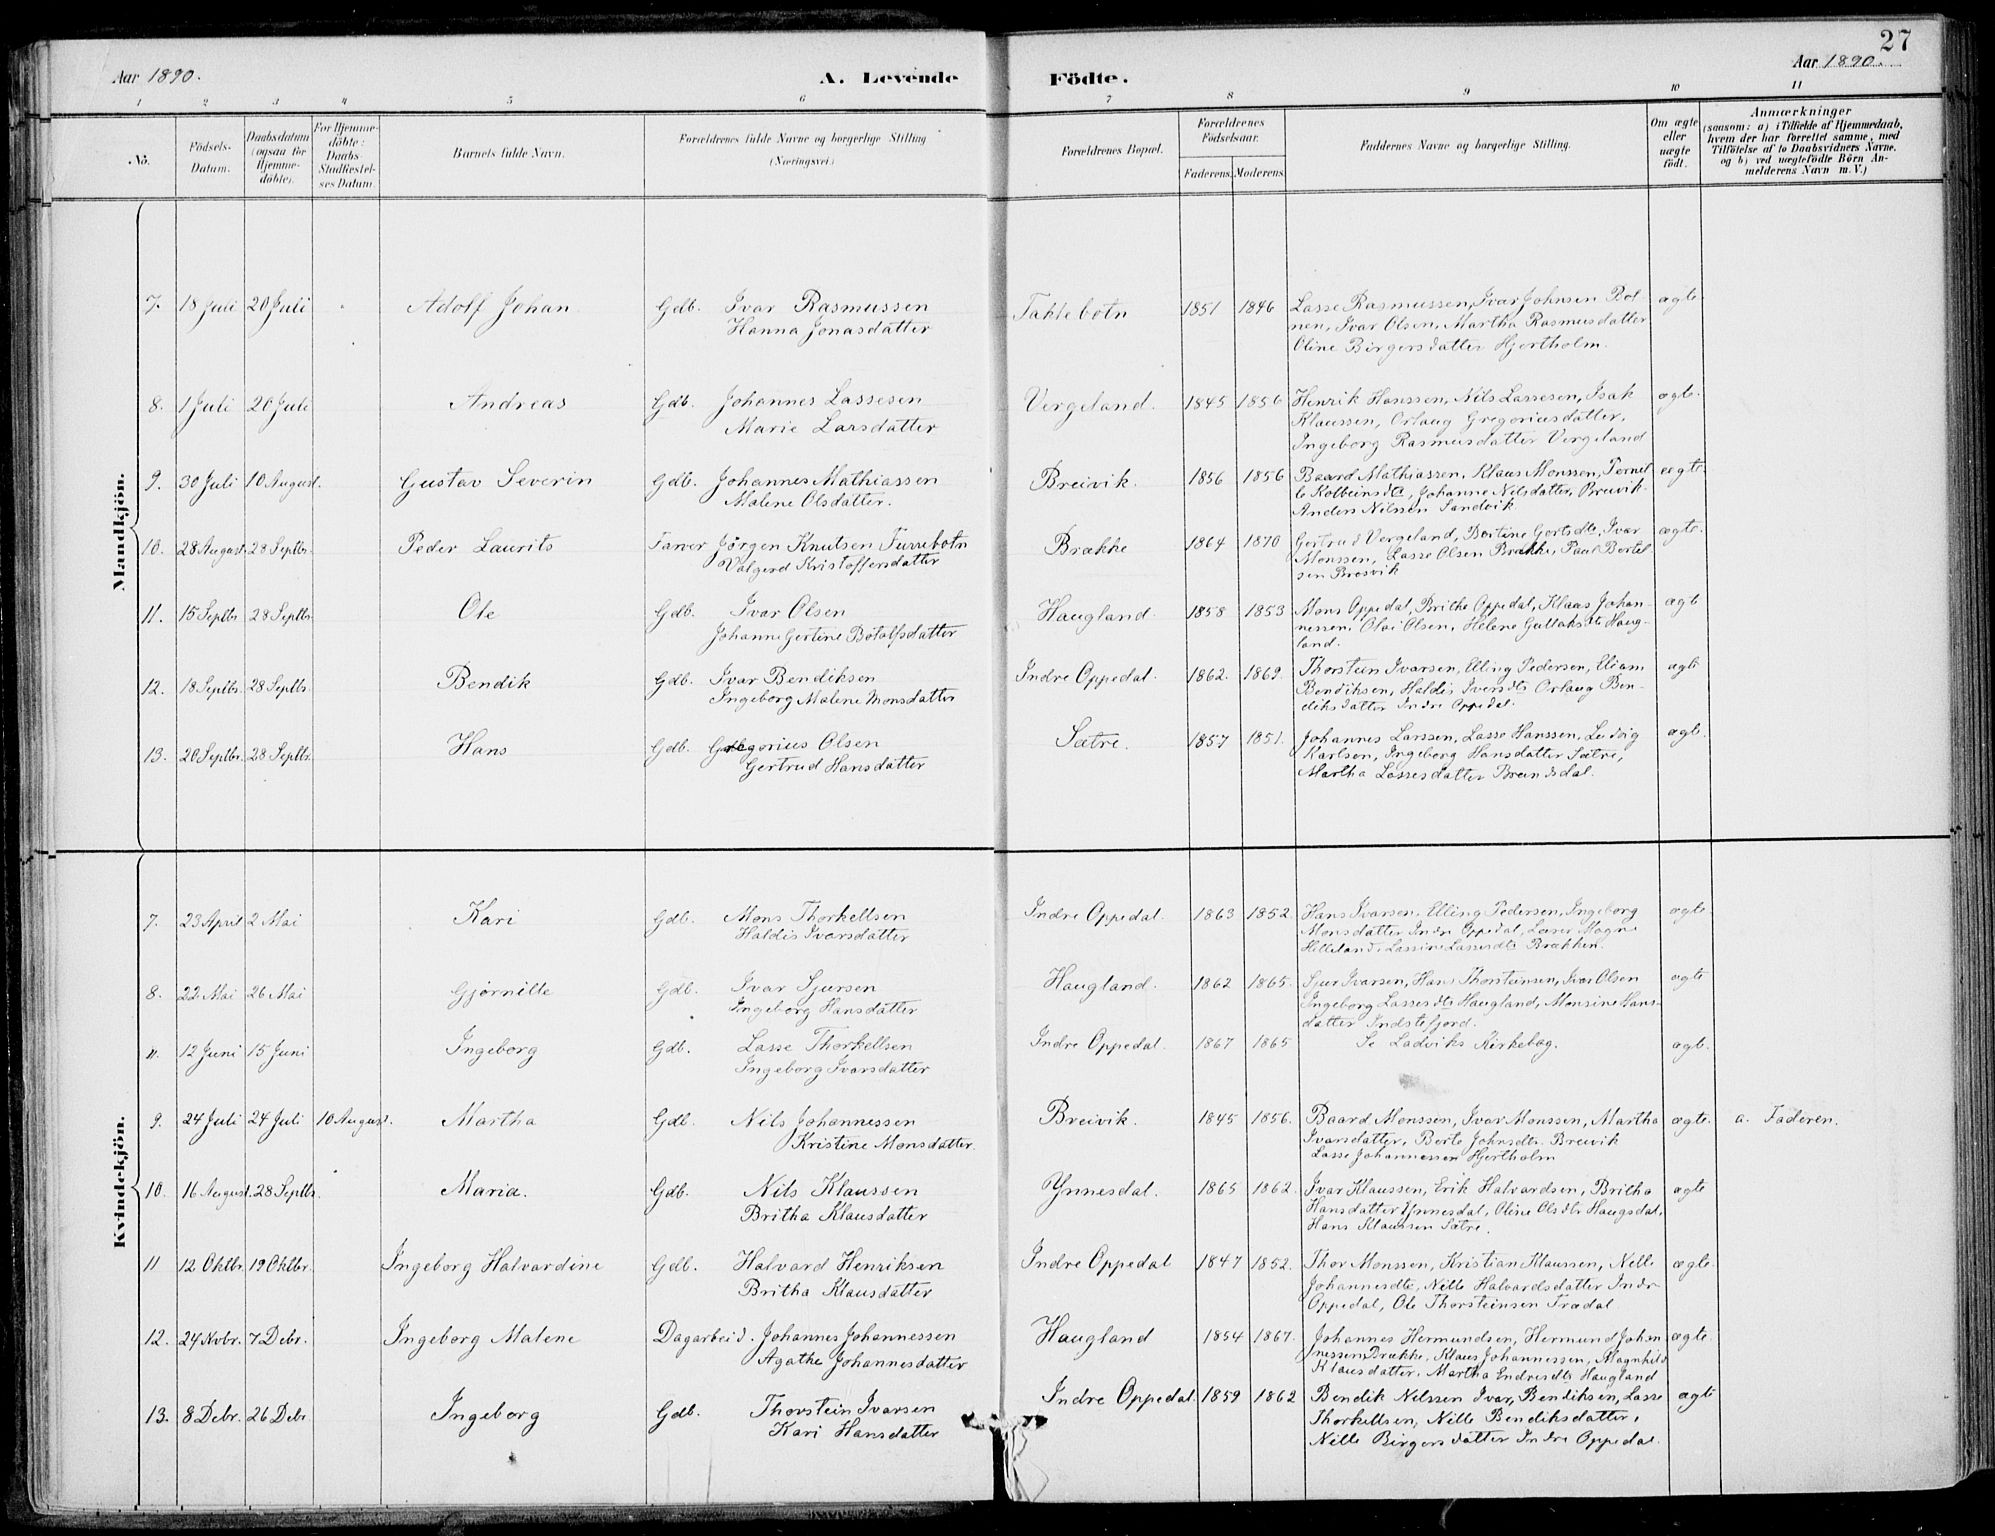 27
Aar 1890.
A. Levende Födte.
Aar 1890.
1 2 3 4 5 6 7 8 9 10 11
No.
Födsels-Datum.
Daabsdatum (ogsaa for Hjemme-döbte).
For Hjemme-döbte: Daabs-Stadfæstel-ses Datum.
Barnets fulde Navn.
Forældrenes fulde Navne og borgerlige Stilling (Næringsvei.)
Forældrenes Bopæl.
Forældrenes Födselsaar.
Faderens. Moderens.
Faddernes Navne og borgerlige Stilling.
Om ægte eller uægte födt.
Anmærkninger
(saasom: a) i Tilfælde af Hjemmedaab,
hvem der har forrettet samme, med
Tilföielse af to Daabsvidners Navne.
og b) ved uægtefödte Börn An-
melderens Navn m. V.)
Mandkjön.
7. 18 Juli 20 Juli Adolf Johan Gdb. Ivar Rasmussen Taklebotn 1851 1846 Lasse Rasmussen, Ivar Johnsen Bot- ægte
Hanna Jonasdatter nen, Ivar Olsen, Martha Rasmusdatter
Oline Birgersdatter Hjertholm.
8. 1 Juli 20 Juli Andreas Gdb. Johannes Lassesen Vergeland. 1845 1856 Henrik Hanssen, Nils Lassesen, Isak ægte.
Marie Larsdatter Klaussen, Orlaug Gregoriusdatter,
Ingeborg Rasmusdatter Vergeland
9. 30 Juli 10 August. Gustav Severin Gdb. Johannes Mathiassen Breivik. 1856 1856 Baard Mathiassen, Klaus Monssen, Pernil- ægte
Malene Olsdatter. le Kolbeinsdtr, Johanne Nilsdatter, Breivik
Anders Nilsen Sandvik
10. 28 August. 28 Septbr. Peder Laurits Farver Jörgen Knutsen Furrebotn Brække 1864 1870 Gertrud Vergeland, Bertine Gertsdtr, Ivar ægte.
Valgerd Kristoffersdatter Monssen, Lasse Olsen Brække, Paul Bertel
sen Brosvik
11. 15 Septbr 28 Septbr. Ole Gdb. Ivar Olsen Haugland. 1858 1853 Mons Oppedal, Brithe Oppedal, Klaas Johan- ægt
Johanne Gertine Botolfsdatter nessen, Olai Olsen, Helene Gullaksdtr Haug-
land.
12. 18 Septbr. 28 Septbr. Bendik Gdb. Ivar Bendiksen Indre Oppedal. 1862. 1869. Thorstein Ivarsen, Elling Pedersen, Eliam ægt
Ingeborg Malene Monsdatter Bendiksen, Haldis Iversdtr Orlaug Ben-
diksdatter Indre Oppedal.
13. 20 Septbr. 28 Septbr. Hans Gdb. Gregorius Olsen Sætre. 1857 1851. Johannes Larssen, Lasse Hanssen, Ludvig ægt.
Gertrud Hansdatter Karlsen, Ingeborg Hansdatter Sætre,
Martha Lassesdatter Breindsdal.
Kvindekjön.
7. 23 April 2 Mai Kari Gdb. Mons Thorkellsen Indre Oppedal. 1863 1852. Hans Ivarsen, Elling Pedersen, Ingeborg ægte
Haldis Ivarsdatter Monsdatter Indre Oppedal, Læser Mogne
Helleland, Lassine Lassesdtr Brækken.
8. 22 Mai 26 Mai Gjørnille Gdb. Ivar Sjursen Haugland. 1862 1865. Sjur Ivarsen, Hans Thorsteinsen, Ivar Olsen ægte
Ingeborg Hansdatter Ingeborg Lassesdtr Haugland, Monsine Hans-
datter Indstefjord.
11. 12 Juni 15 Juni Ingeborg Gdb. Lasse Thorkellsen Indre Oppedal. 1867 1865 Se Ladviks Kirkebog. ægt.
Ingeborg Ivarsdatter
9. 24 Juli 24 Juli 10 August. Martha Gdb. Nils Johannessen Breivik. 1845 1856. Baard Monssen, Ivar Monssen, Martha ægte. a. Faderen.
Kristine Monsdatter. Ivarsdatter, Berte Johnsdtr. Breivik
Lasse Johannessen Hjertholm
10. 16 August. 28 Septbr. Maria. Gdb. Nils Klaussen Ynnesdal. 1865 1862. Ivar Klaussen, Erik Halvardsen, Britha ægte
Britha Klausdatter Hansdatter Ynnesdal, Oline Olsdtr Haugsdal,
Hans Klaussen Sætre.
11 12 Oktbr. 19 Oktbr. Ingeborg Halvardine Gdb. Halvard Henriksen Indre Oppedal 1847 1852. Thor Monssen, Kristian Klaussen, Nille ægte.
Britha Klausdatter Johannesdtr, Nille Halvardsdatter Indr
Oppedal, Ole Thorsteinsen Trædal
12. 24 Novbr. 7 Debr. Ingeborg Malene Dagarbeid. Johannes Johannessen Haugland 1854 1867. Johannes Hermundsen, Hermund Johan ægte
Agathe Johannesdatter nessen, Brække, Klaus Johannessen, Magnhild
Klausdatter, Martha Endresdtr Haugland
13. 8 Debr. 26 Debr Ingeborg Gdb. Thorstein Ivarsen Indre Oppedal. 1859 1862 Bendik Nilssen Ivar Bendiksen, Lasse ægte
Kari Hansdatter Thorkellsen, Nille Bendiksdatter,
Nille Birgersdatter Indre Oppedal.